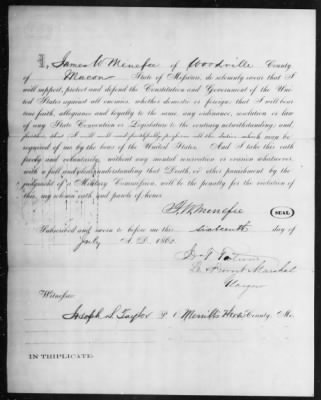 I, James W Menefee of Woodville County
of Macon State of Missouri, do solemnly swear that I
will support, protect and defend the Constitution and Government of the Uni-
ted States against all enemies, whether domestic or foreign; that I will bear
true faith, allegiance and loyalty to the same, any ordinance, resolution or law
of any State Convention or Legislature to the contrary notwithstanding; and,
further, that I will well and faithfully perform all the duties, which may be
required of me by the laws of the United States. And I take this oath
freely and voluntarily, without any mental reservation or evasion whatsoever,
with a full and clear understanding that Death, or other punishment by the
judgment of a Military Commission, will be the penalty for the violation of
this, my solemn oath and parole of honor.
J. W. Menefee
SEAL
Subscribed and sworn to before me this sixteenth day of
July A. D. 1862.
Provost Marshal
Glasgow
Witness:
Joseph S. Taylor P. O. County, Mo.
IN TRIPLICATE.